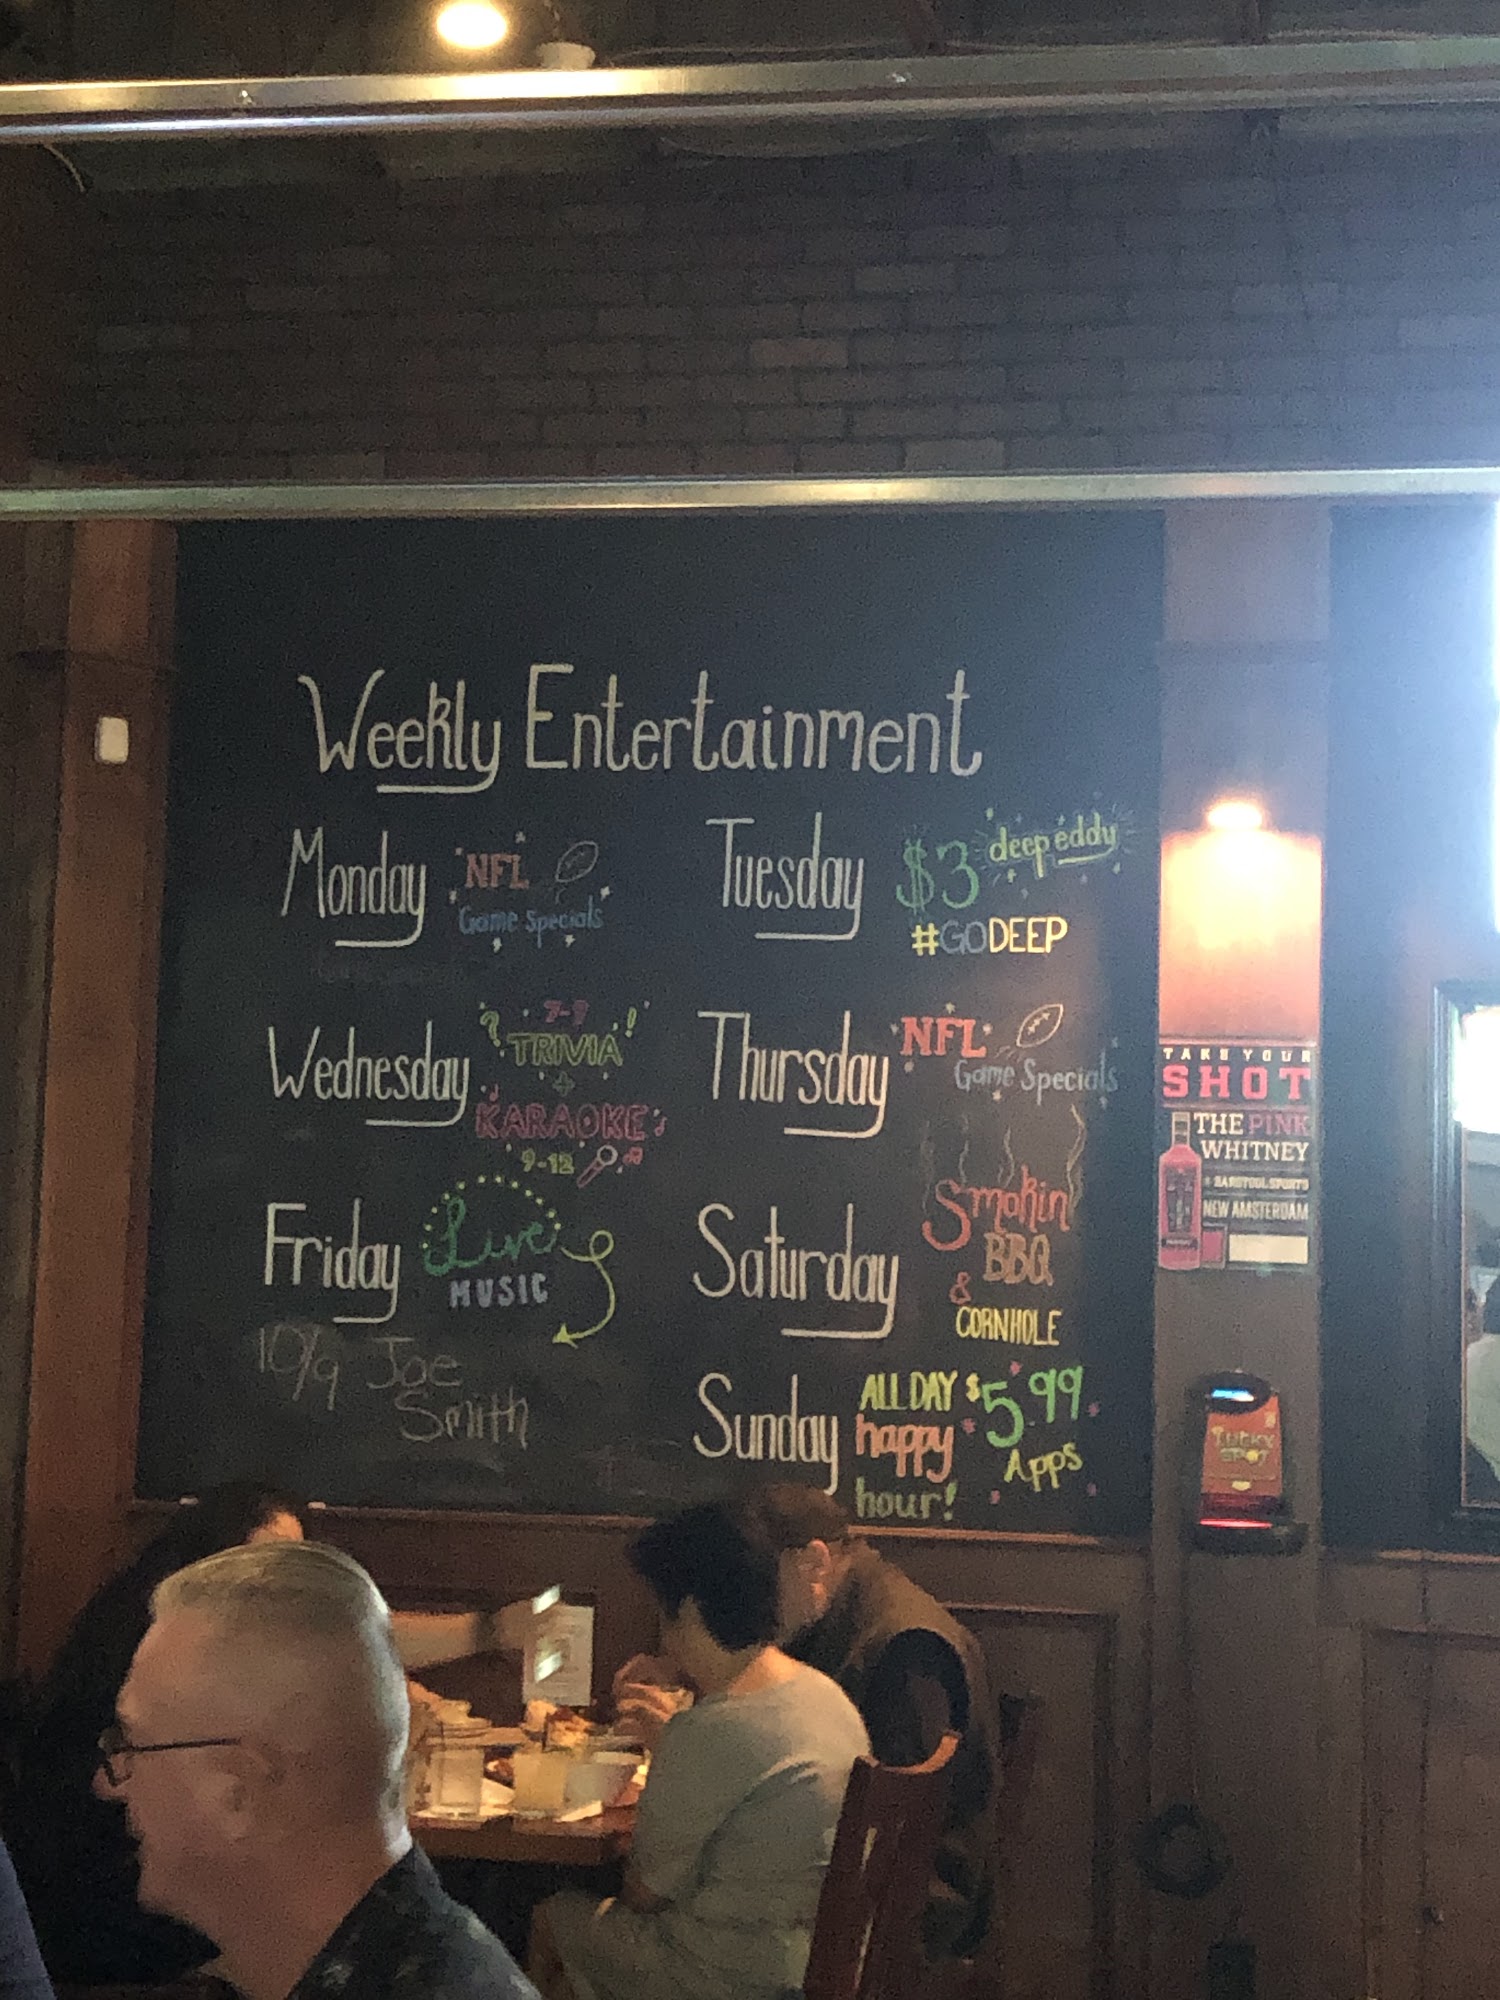 Weekly Entertainment
Monday
NFL
Game Specials
Tuesday
$3 deep eddy
#GODEEP
Wednesday
7-9
TRIVIA!
+
KARAOKE
9-12
Thursday
NFL
Game Specials
Friday
Live
MUSIC
10/9 Joe
Smith
Saturday
Smokin
BBQ
&
CORNHOLE
Sunday
ALL DAY
happy
hour!
$5.99
Apps
TAKE YOUR
SHOT
THE PINK
WHITNEY
BARSTOOL SPORTS
NEW AMSTERDAM
LUCKY
SPOT